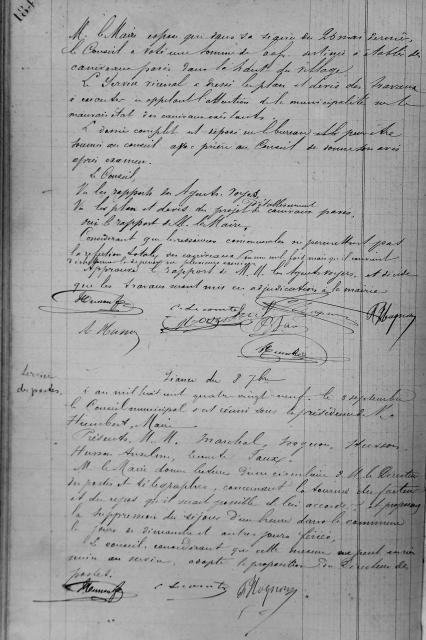 M. le Maire expose que dans sa séance du 28 mai dernier,
le Conseil a voté une somme de destinée à établir des
caniveaux pavés dans le haut du village.
Le Service vicinal a dressé le plan et devis des travaux
à exécuter en appelant l'attention de la municipalité sur le
mauvais état des caniveaux existants.
Le dossier complet est déposé sur le bureau et le
soumis au conseil avec prière au Conseil de donner son avis
après examen.
Le Conseil,
Vu les rapports des Agents voyers,
d'établissement
Vu les plan et devis du projet de caniveaux pavés,
ouï le rapport de M. le Maire,
Considérant que les ressources communales ne permettent pas
la réfection totale des caniveaux en une seule fois mais qu'il convient
la dépense en plusieurs
Approuve le rapport de M.M. les Agents voyers, et décide
que les travaux seront mis en adjudication à la mairie
C. Lecomte
A. Husson
P. Hognon
Service
des postes.
Séance du 8 7bre
L'an mil huit cent quatre vingt neuf, le 8 septembre
le Conseil municipal s'est réuni sous la présidence de M.
Humbert, Maire
Présents, M.M. Marchal, Hognon, Husson,
Husson Anselme, Lecomte, Taux,
M. le Maire donne lecture d'une circulaire de M. le Directeur
des postes et télégraphes, concernant la tournée du facteur
et du repos qu'il serait possible de lui accorder, et proposant
la suppression du séjour d'une heure dans la commune
les jours de dimanche et autres jours fériés,
Le conseil, considérant que cette mesure ne peut en rien
nuire au service, adopte la proposition du Directeur des
postes.
C. Lecomte
P. Hognon